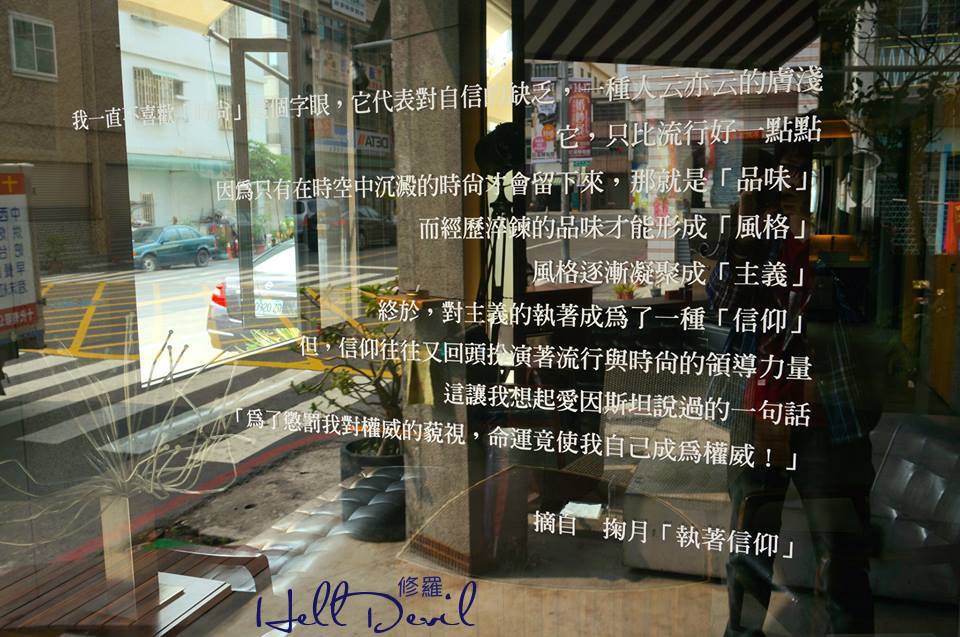 我一直不喜歡「時尚」這個字眼，它代表對自信的缺乏，一種人云亦云的膚淺
它，只比流行好一點點
因為只有在時空中沉澱的時尚才會留下來，那就是「品味」
而經歷淬鍊的品味才能形成「風格」
風格逐漸凝聚成「主義」
終於，對主義的執著成爲了一種「信仰」
但，信仰往往又回頭扮演著流行與時尚的領導力量
這讓我想起愛因斯坦說過的一句話
「爲了懲罰我對權威的藐視，命運竟使我自己成爲權威！」
摘自　掬月「執著信仰」
修羅
Hell Devil